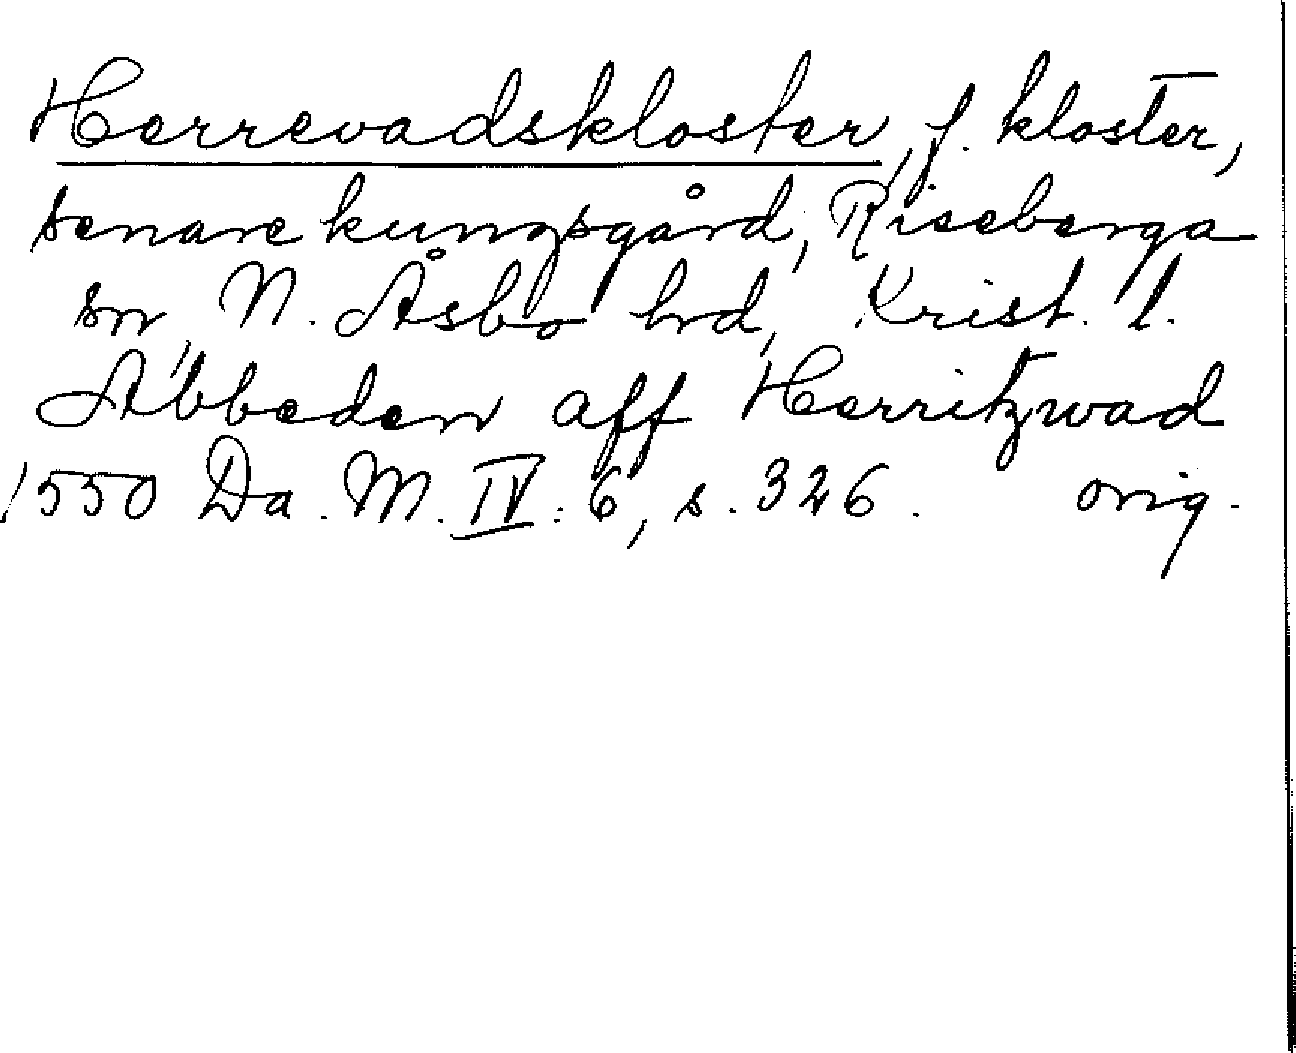 Herrevadskloster, f. kloster,
senare kungsgård, Riseberga
sn, N. Åsbo hd, Krist. l.
Abbeden aff Herritzwad
1550 Da. M. IV. 6, s. 326. orig.